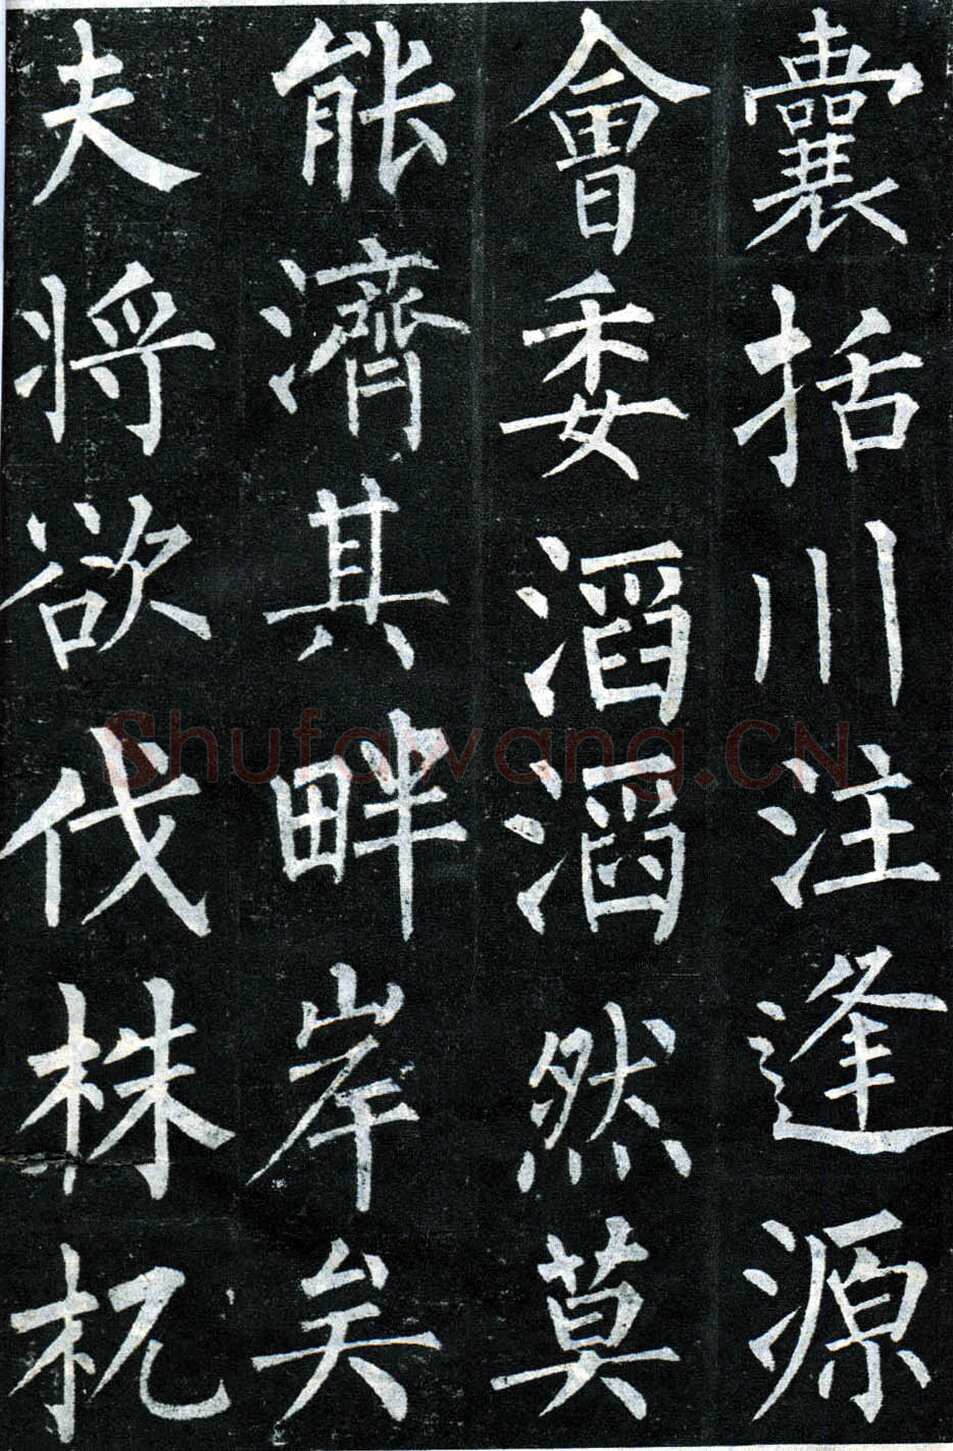 囊括川注逢源
會委滔滔然莫
能濟其畔岸矣
夫將欲伐株杌
Shufawang.CN